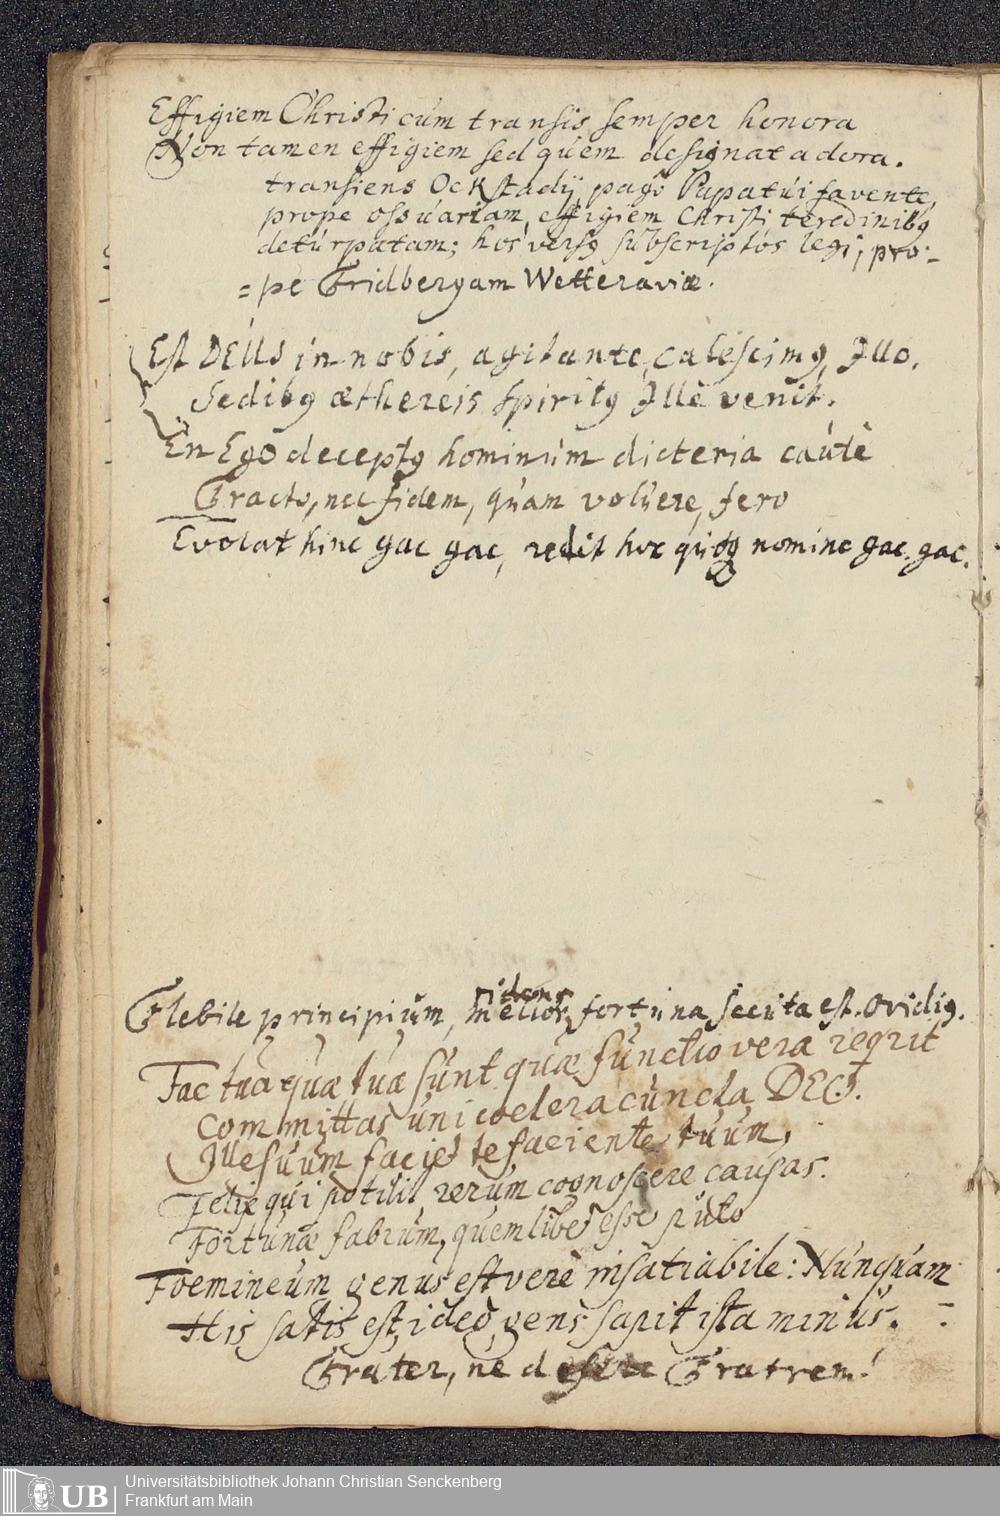 Effigiem Christi cum transis semper honora
Non tamen effigiem sed quem designat adora.
transiens Ockstadij pago Papatui favente,
prope ossuariam, effigiem Christi teredinibꝯ
deturpatam; hos versꝯ subscriptos legi, pro-
=pe Fridbergam Wetteraviæ.
Est DEUs in nobis, agitante, calescimꝯ, Illo.
Sedibꝯ æthereis spiritꝯ Ille venit.
En Ego deceptꝯ hominum dicteria cautè
Tracto, nec fidem, quam voluere, fero
Evolat hinc gac gac, redit huc quoqꝫ nomine gac. gac.
ridens
Flebile principium, melior, fortuna secuta est. Ovidiꝯ.
Fac tua quæ tua sunt quæ functio vera reqrit
Committas uni coelera cuncta DEO.
Ille suum faciet te faciente tuum,
Felix qui potuit rerum cognoscere causas.
Fortunæ fabrum, quemlibet esse puto
Foemineum genus est verè insatiabile: Nunquam
His satis est, ideo, gens sapit ista minus. -
Frater, ne desere Fratrem!
UB
Universitätsbibliothek Johann Christian Senckenberg
Frankfurt am Main